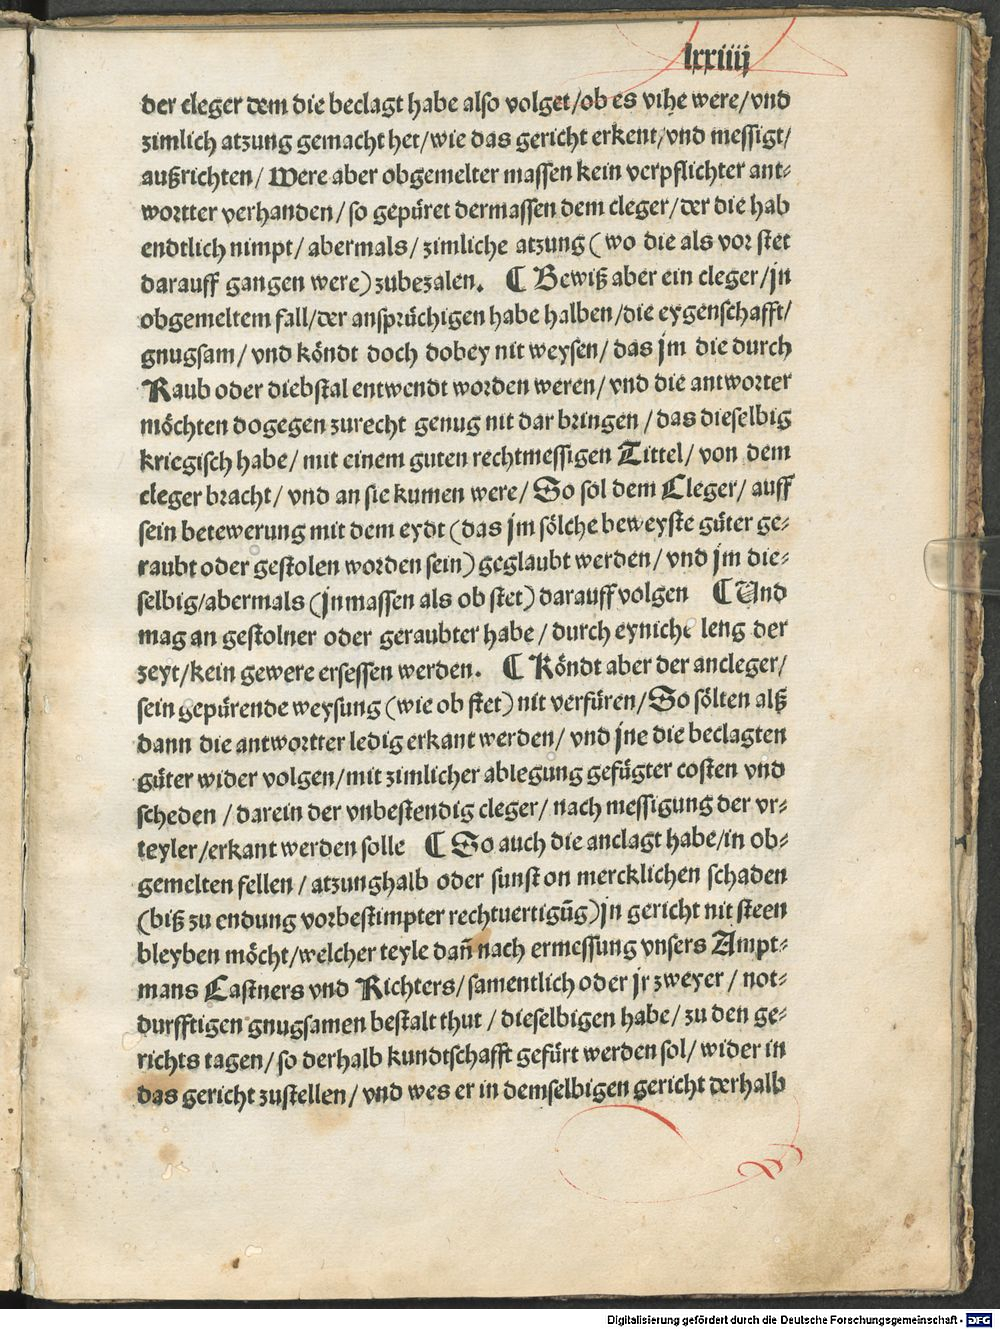 lxxiiij
der cleger dem die beclagt habe also volget/ob es vihe were/vnd
zimlich atzung gemacht het/wie das gericht erkent/vnd messigt/
außrichten/ Were aber obgemelter massen kein verpflichter ant⸗
wortter verhanden/so gepüret dermassen dem cleger/der die hab
endtlich nimpt/abermals/zimliche atzung (wo die als vor stet
darauff gangen were) zubezalen. ¶ Bewiß aber ein cleger/jn
obgemeltem fall/der ansprüchigen habe halben/die eygenschafft/
gnugsam/vnd köndt doch dobey nit weysen/das jm die durch
Raub oder diebstal entwendt worden weren/vnd die antworter
möchten dogegen zurecht genug nit dar bringen/das dieselbig
kriegisch habe/mit einem guten rechtmessigen Tittel/von dem
cleger bracht/vnd an sie kumen were/So sol dem Cleger/auff
sein betewerung mit dem eydt (das jm sölche beweyste güter ge⸗
raubt oder gestolen worden sein) geglaubt werden/vnd jm die⸗
selbig/abermals (jnmassen als ob stet) darauff volgen ¶ Und
mag an gestolner oder geraubter habe/durch eyniche leng der
zeyt/kein gewere ersessen werden. ¶ Köndt aber der ancleger/
sein gepürende weysung (wie ob stet) nit verfüren/So sölten alß
dann die antwortter ledig erkant werden/vnd jne die beclagten
güter wider volgen/mit zimlicher ablegung gefügter costen vnd
scheden/darein der vnbestendig cleger/nach messigung der vr⸗
teyler/erkant werden solle ¶ So auch die anclagt habe/in ob⸗
gemelten fellen/atzunghalb oder sunst on mercklichen schaden
(biß zu endung vorbestimpter rechtuertigūg) jn gericht nit steen
bleyben möcht/welcher teyle dañ nach ermessung vnsers Ampt⸗
mans Castners vnd Richters/samentlich oder jr zweyer/not⸗
durfftigen gnugsamen bestalt thut/dieselbigen habe/zu den ge⸗
richts tagen/so derhalb kundtschafft gefürt werden sol/wider in
das gericht zustellen/vnd wes er in demselbigen gericht derhalb
Digitalisierung gefördert durch die Deutsche Forschungsgemeinschaft - DFG